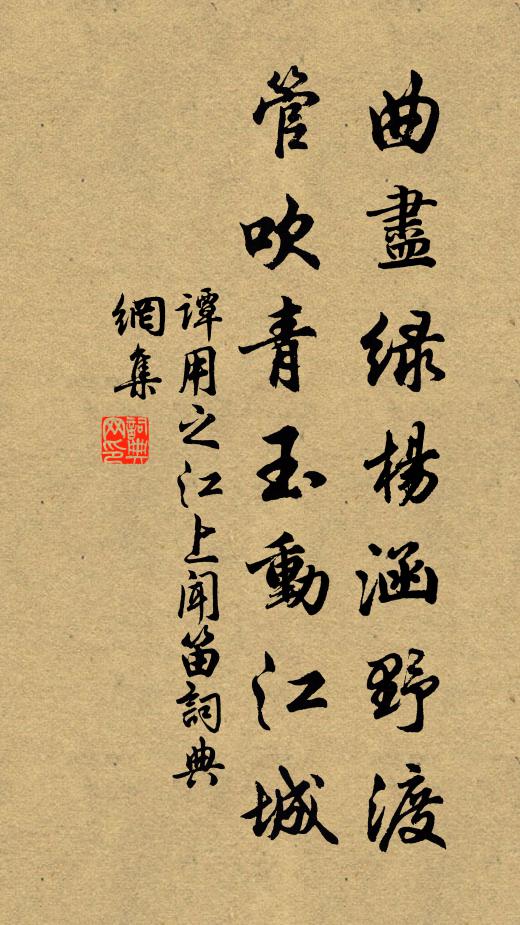 曲盡緑楊涵野渡
管吹青玉動江城
譚用之江上聞笛詞典
網集
詞典
网印